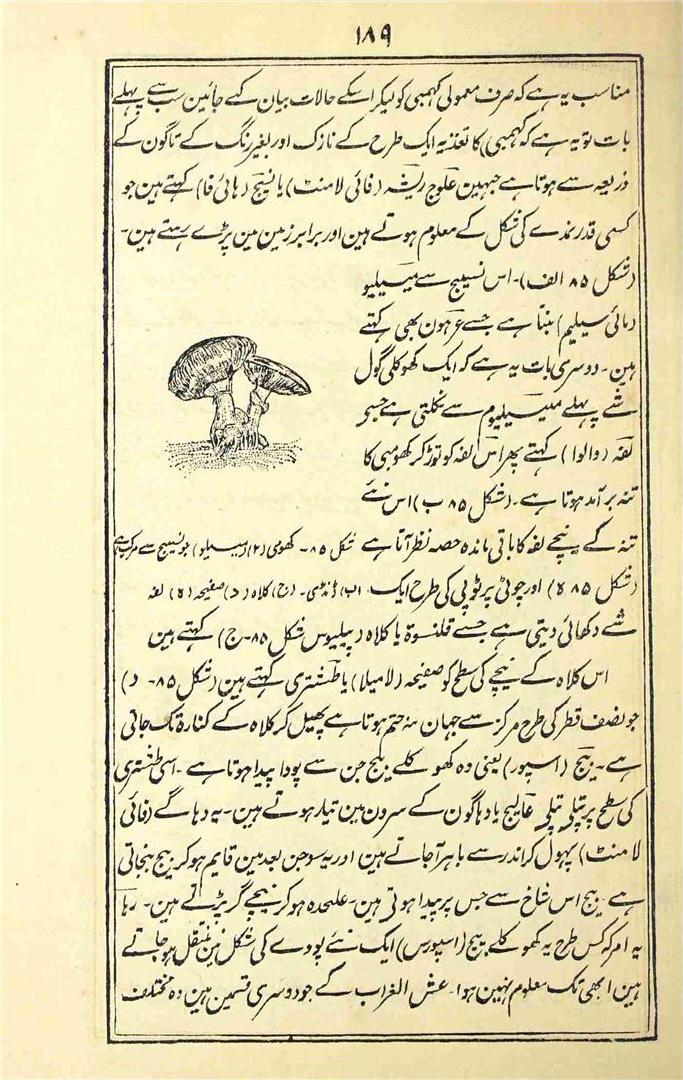 ۱۸۹
مناسب یہ ہے کہ صرف معمولی کہمبی کو لیکر اسکے حالات بیان کیے جائین سب سے پہلے
بات تو یہ ہے کہ کہمبی کا تغذیہ ایک طرح کے نازک اور بغیر رنگ کے تاگون کے
ذریعہ سے ہوتا ہے جنہین علوج ریشہ (فائی لامنٹ) یا نسیج (ہائی فا) کہتے ہین جو
کسی قدر نمدے کی شکل کے معلوم ہوتے ہین اور برابر زمین مین پڑے رہتے ہین۔
(شکل ۸۵ الف)۔ اس نسیج سے میسیلیو
(مائی سیلیم) بنتا ہے جسے عرہون بھی کہتے
ہین۔ دوسری بات یہ ہے کہ ایک کھوکلی گول
شے پہلے میسیلیوم سے نکلتی ہے جسے
لفہ (والوا) کہتے پھر اس لفہ کو توڑ کر کھومبی کا
تنہ برآمد ہوتا ہے۔ (شکل ۸۵ ب) اس نئے
تنہ کے نیچے لفہ کا باقی ماندہ حصہ نظر آتا ہے
(شکل ۸۵ ہ) اور چوٹی پر ٹوپی کی طرح ایک
شکل ۸۵۔ کھومبی (۲) (میسیلو) جو نسیج سے مرکب ہے
(ب) ڈنڈی۔ (ج) کلاہ (د) صفیحہ (ہ) لفہ
شے دکھائی دیتی ہے جسے قلنسوۃ یا کلاہ (پیلیوس شکل ۸۵۔ج) کہتے ہین
اس کلاہ کے نیچے کی سطح کو صفیحہ (لامیلا) یا طشتری کہتے ہین (شکل ۸۵۔ د)
جو نصف قطر کی طرح مرکز سے جہان تنہ ختم ہوتا ہے پھیل کر کلاہ کے کنارہ تک جاتی
ہے۔ بیج (اسپور) یعنی وہ کھوکلے بیج جن سے پودا پیدا ہوتا ہے۔ اسی طشتری
کی سطح پر پتلے پتلے عالیج یا دہاگون کے سرون مین تیار ہوتے ہین۔ یہ دہاگے (فائی
لامنٹ) پہول کر اندر سے باہر آجاتے ہین اور یہ سوجن بعد مین قایم ہو کر بیج بنجاتی
ہے۔ بیج اس شاخ سے جس پر پیدا ہوتی ہین۔ علیحدہ ہو کر نیچے گر پڑتے ہین۔ رہا
یہ امر کہ کس طرح یہ کھوکلے بیج (اسپورس) ایک نئے پودے کی شکل مین منتقل ہو جاتے
ہین ابھی تک معلوم نہین ہوا۔ عش الغراب کے جو دوسری قسمین ہین وہ مختلف